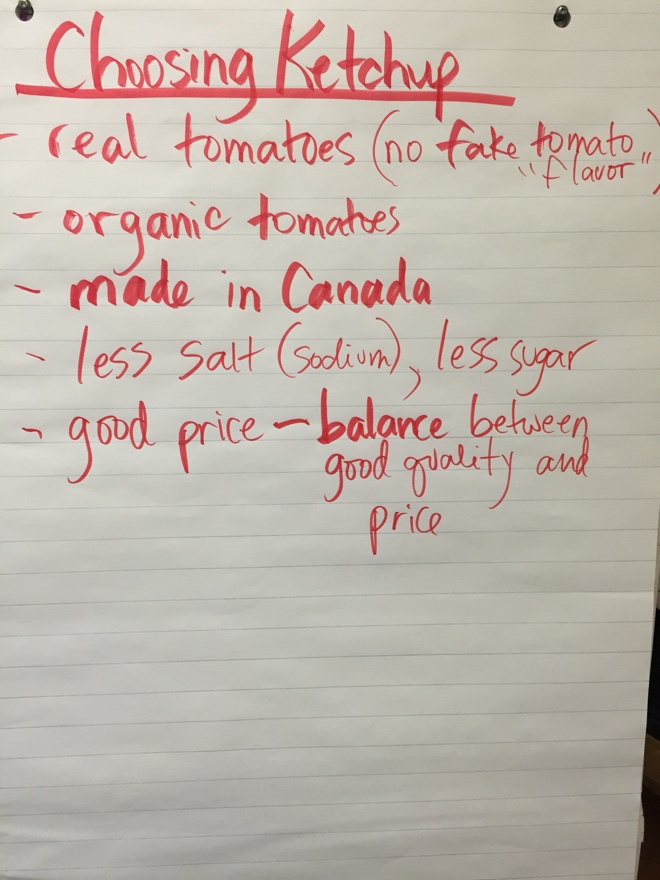 Choosing Ketchup
- real tomatoes (no fake tomato
"flavor")
- organic tomatoes
- made in Canada
- less salt (sodium), less sugar
- good price - balance between
good quality and
price